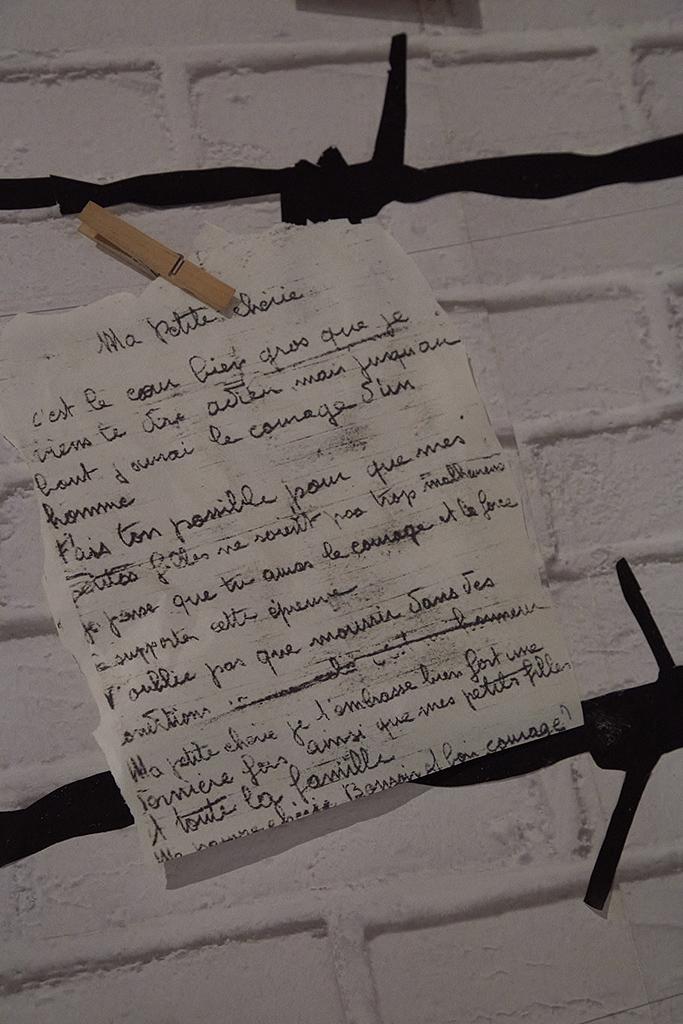 Ma Petite cherie
c'est le cœur bien gros que je
viens te dire adieu mais jusqu'au
bout j'aurai le courage d'un
homme
Fais ton possible pour que mes
petites filles ne soient pas trop malheureuses
je pense que tu auras le courage et la force
supporter cette épreuve
N'oublie pas que mourir dans des
Ma petite cherie je t'embrasse bien fort une
dernière fois ainsi que mes petites filles
et toute la famille
Ma pauvre cherie Bonsoir et bon courage